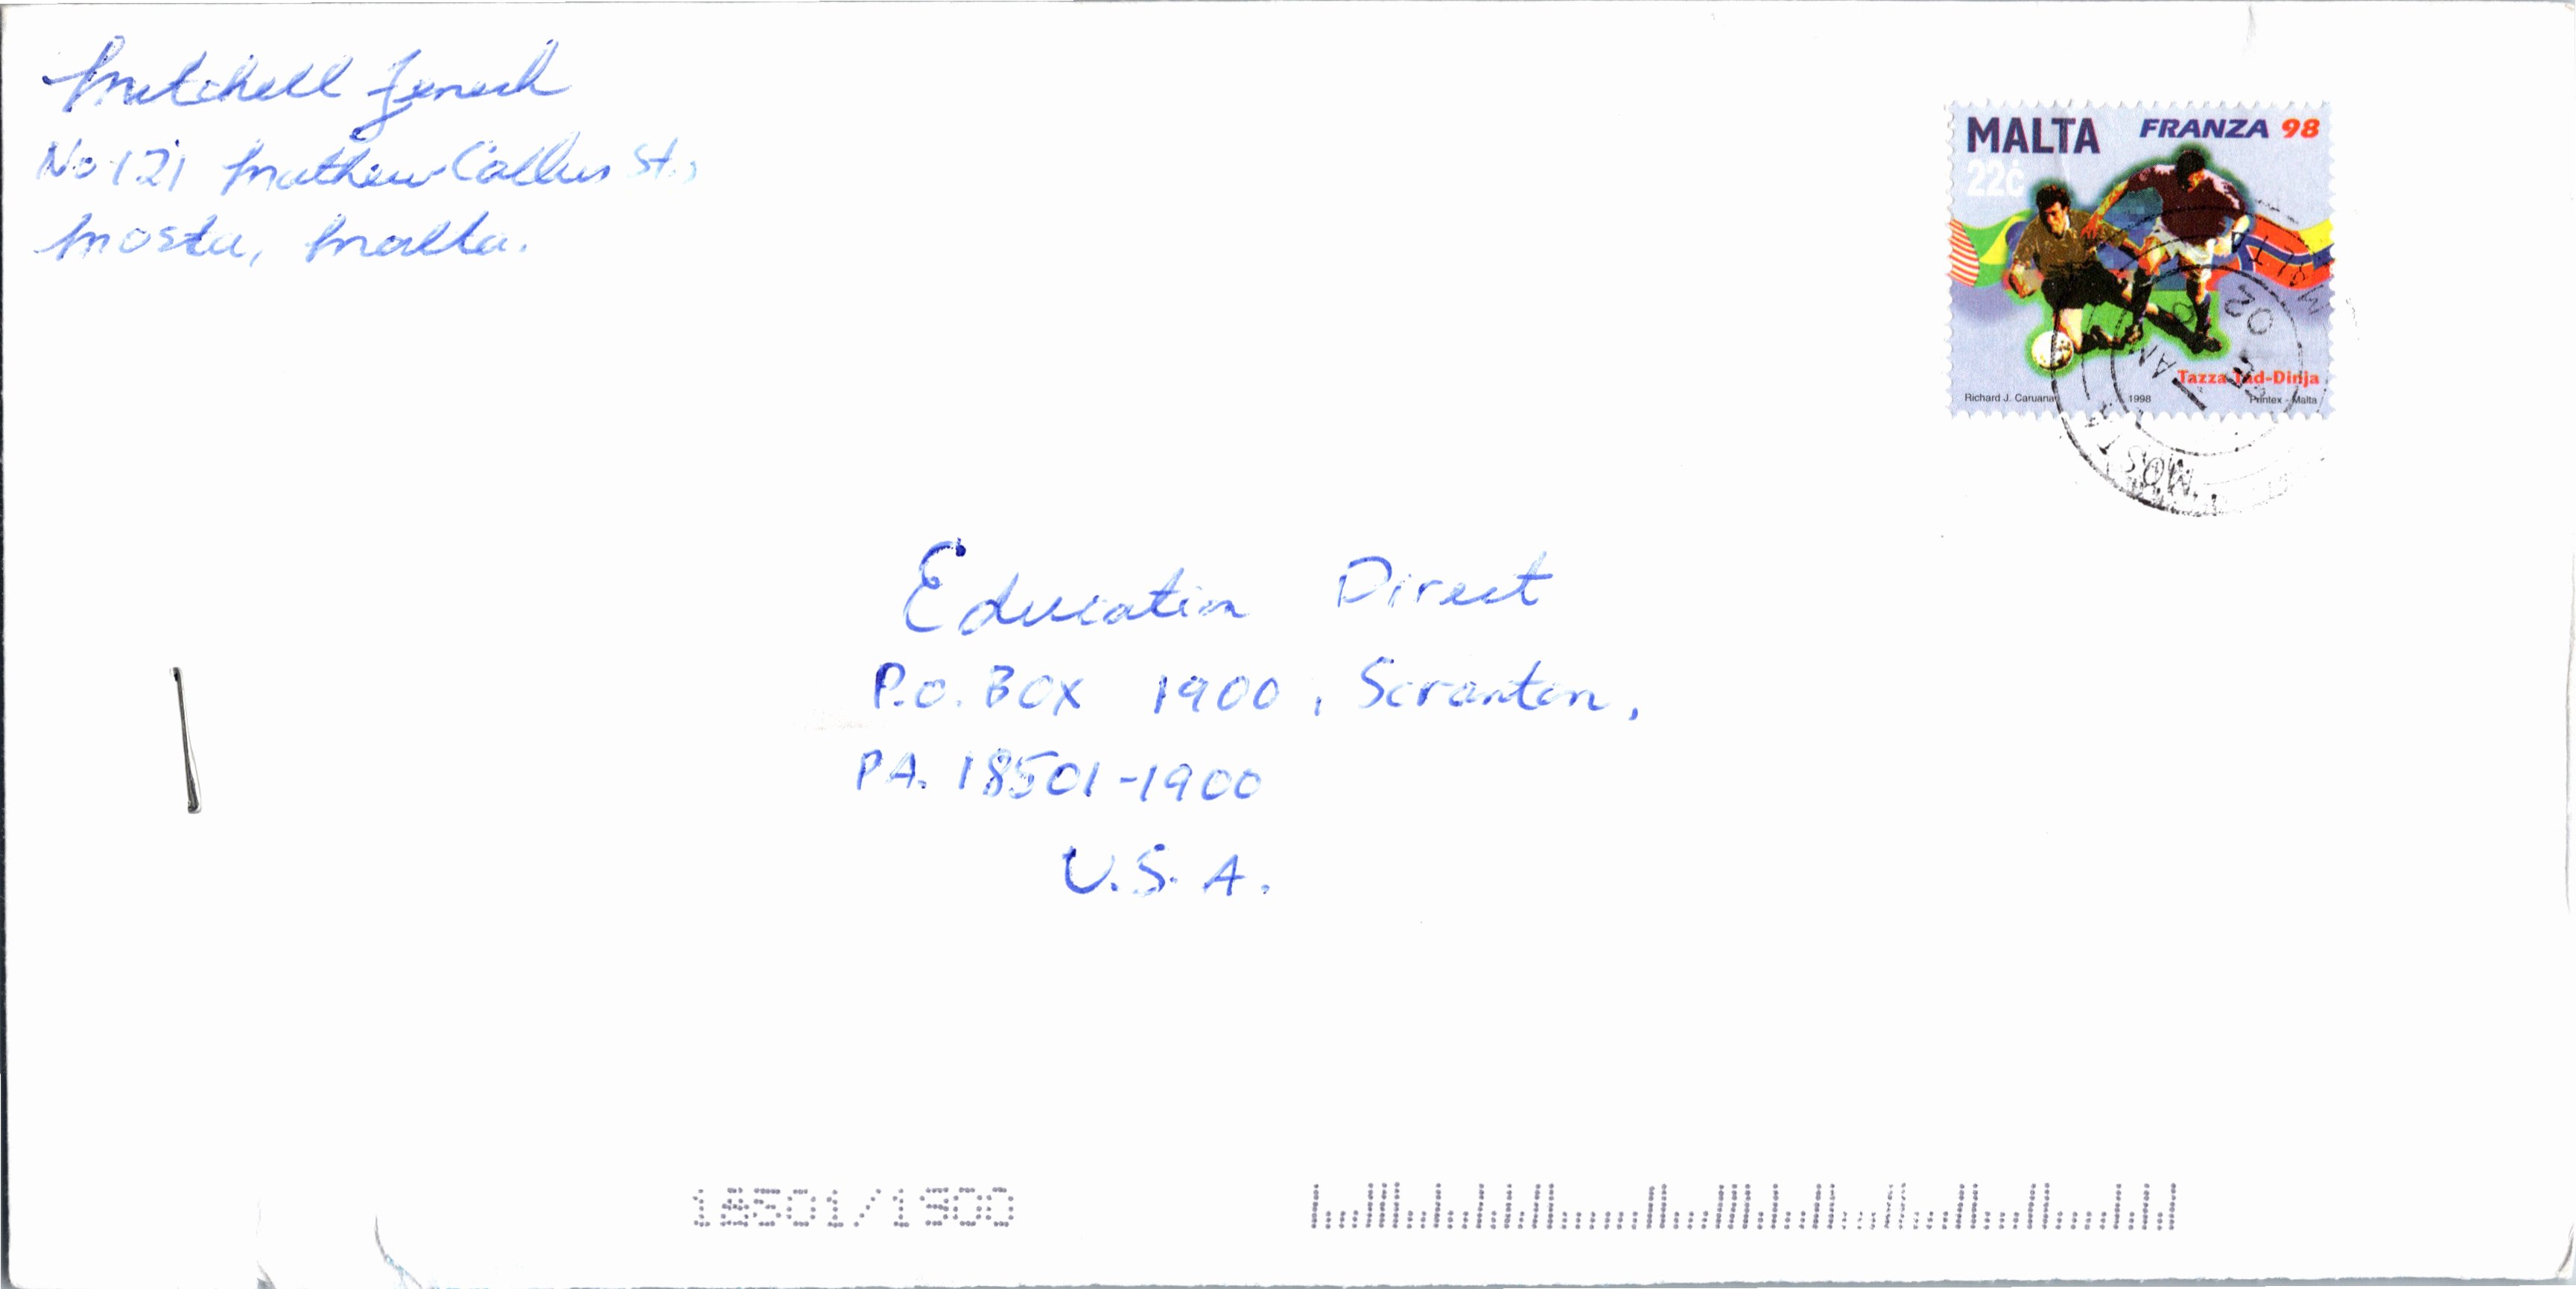 Mitchell Fenech
No 121 Mathew Callus St.,
Mosta, Malta.
MALTA FRANZA 98
22ċ
Tazza tad-Dinja
Richard J. Caruana 1998 Printex - Malta
MALTA
02
AM
MOSTA
Education Direct
P.O. BOX 1900, Scranton,
PA. 18501-1900
U.S.A.
18501/1900